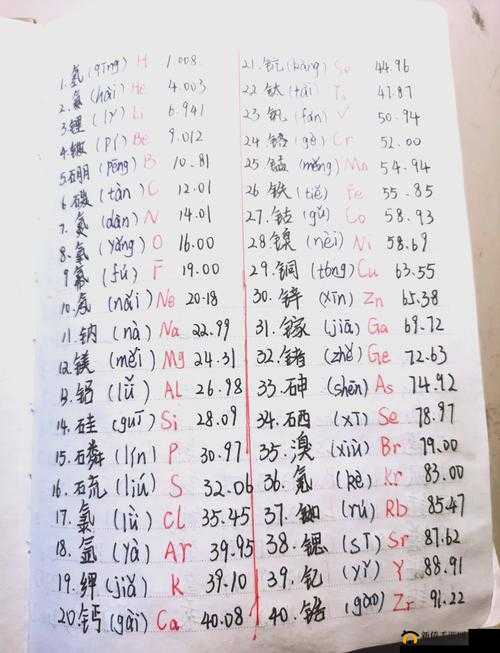 1.氢(qīng) H 1.008
2.氦(hài) He 4.003
3.锂(lǐ) Li 6.941
4.铍(pí) Be 9.012
5.硼(pēng) B 10.81
6.碳(tàn) C 12.01
7.氮(dàn) N 14.01
8.氧(yǎng) O 16.00
9.氟(fú) F 19.00
10.氖(nǎi) Ne 20.18
11.钠(nà) Na 22.99
12.镁(měi) Mg 24.31
13.铝(lǚ) Al 26.98
14.硅(guī) Si 28.09
15.磷(lín) P 30.97
16.硫(liú) S 32.06
17.氯(lǜ) Cl 35.45
18.氩(yà) Ar 39.95
19.钾(jiǎ) K 39.10
20.钙(gài) Ca 40.08
21.钪(kàng) Sc 44.96
22.钛(tài) Ti 47.87
23.钒(fán) V 50.94
24.铬(gè) Cr 52.00
25.锰(měng) Mn 54.94
26.铁(tiě) Fe 55.85
27.钴(gǔ) Co 58.93
28.镍(niè) Ni 58.69
29.铜(tóng) Cu 63.55
30.锌(xīn) Zn 65.38
31.镓(jiā) Ga 69.72
32.锗(zhě) Ge 72.63
33.砷(shēn) As 74.92
34.硒(xī) Se 78.97
35.溴(xiù) Br 79.00
36.氪(kè) Kr 83.00
37.铷(rú) Rb 85.47
38.锶(sī) Sr 87.62
39.钇(yǐ) Y 88.91
40.锆(gào) Zr 91.22